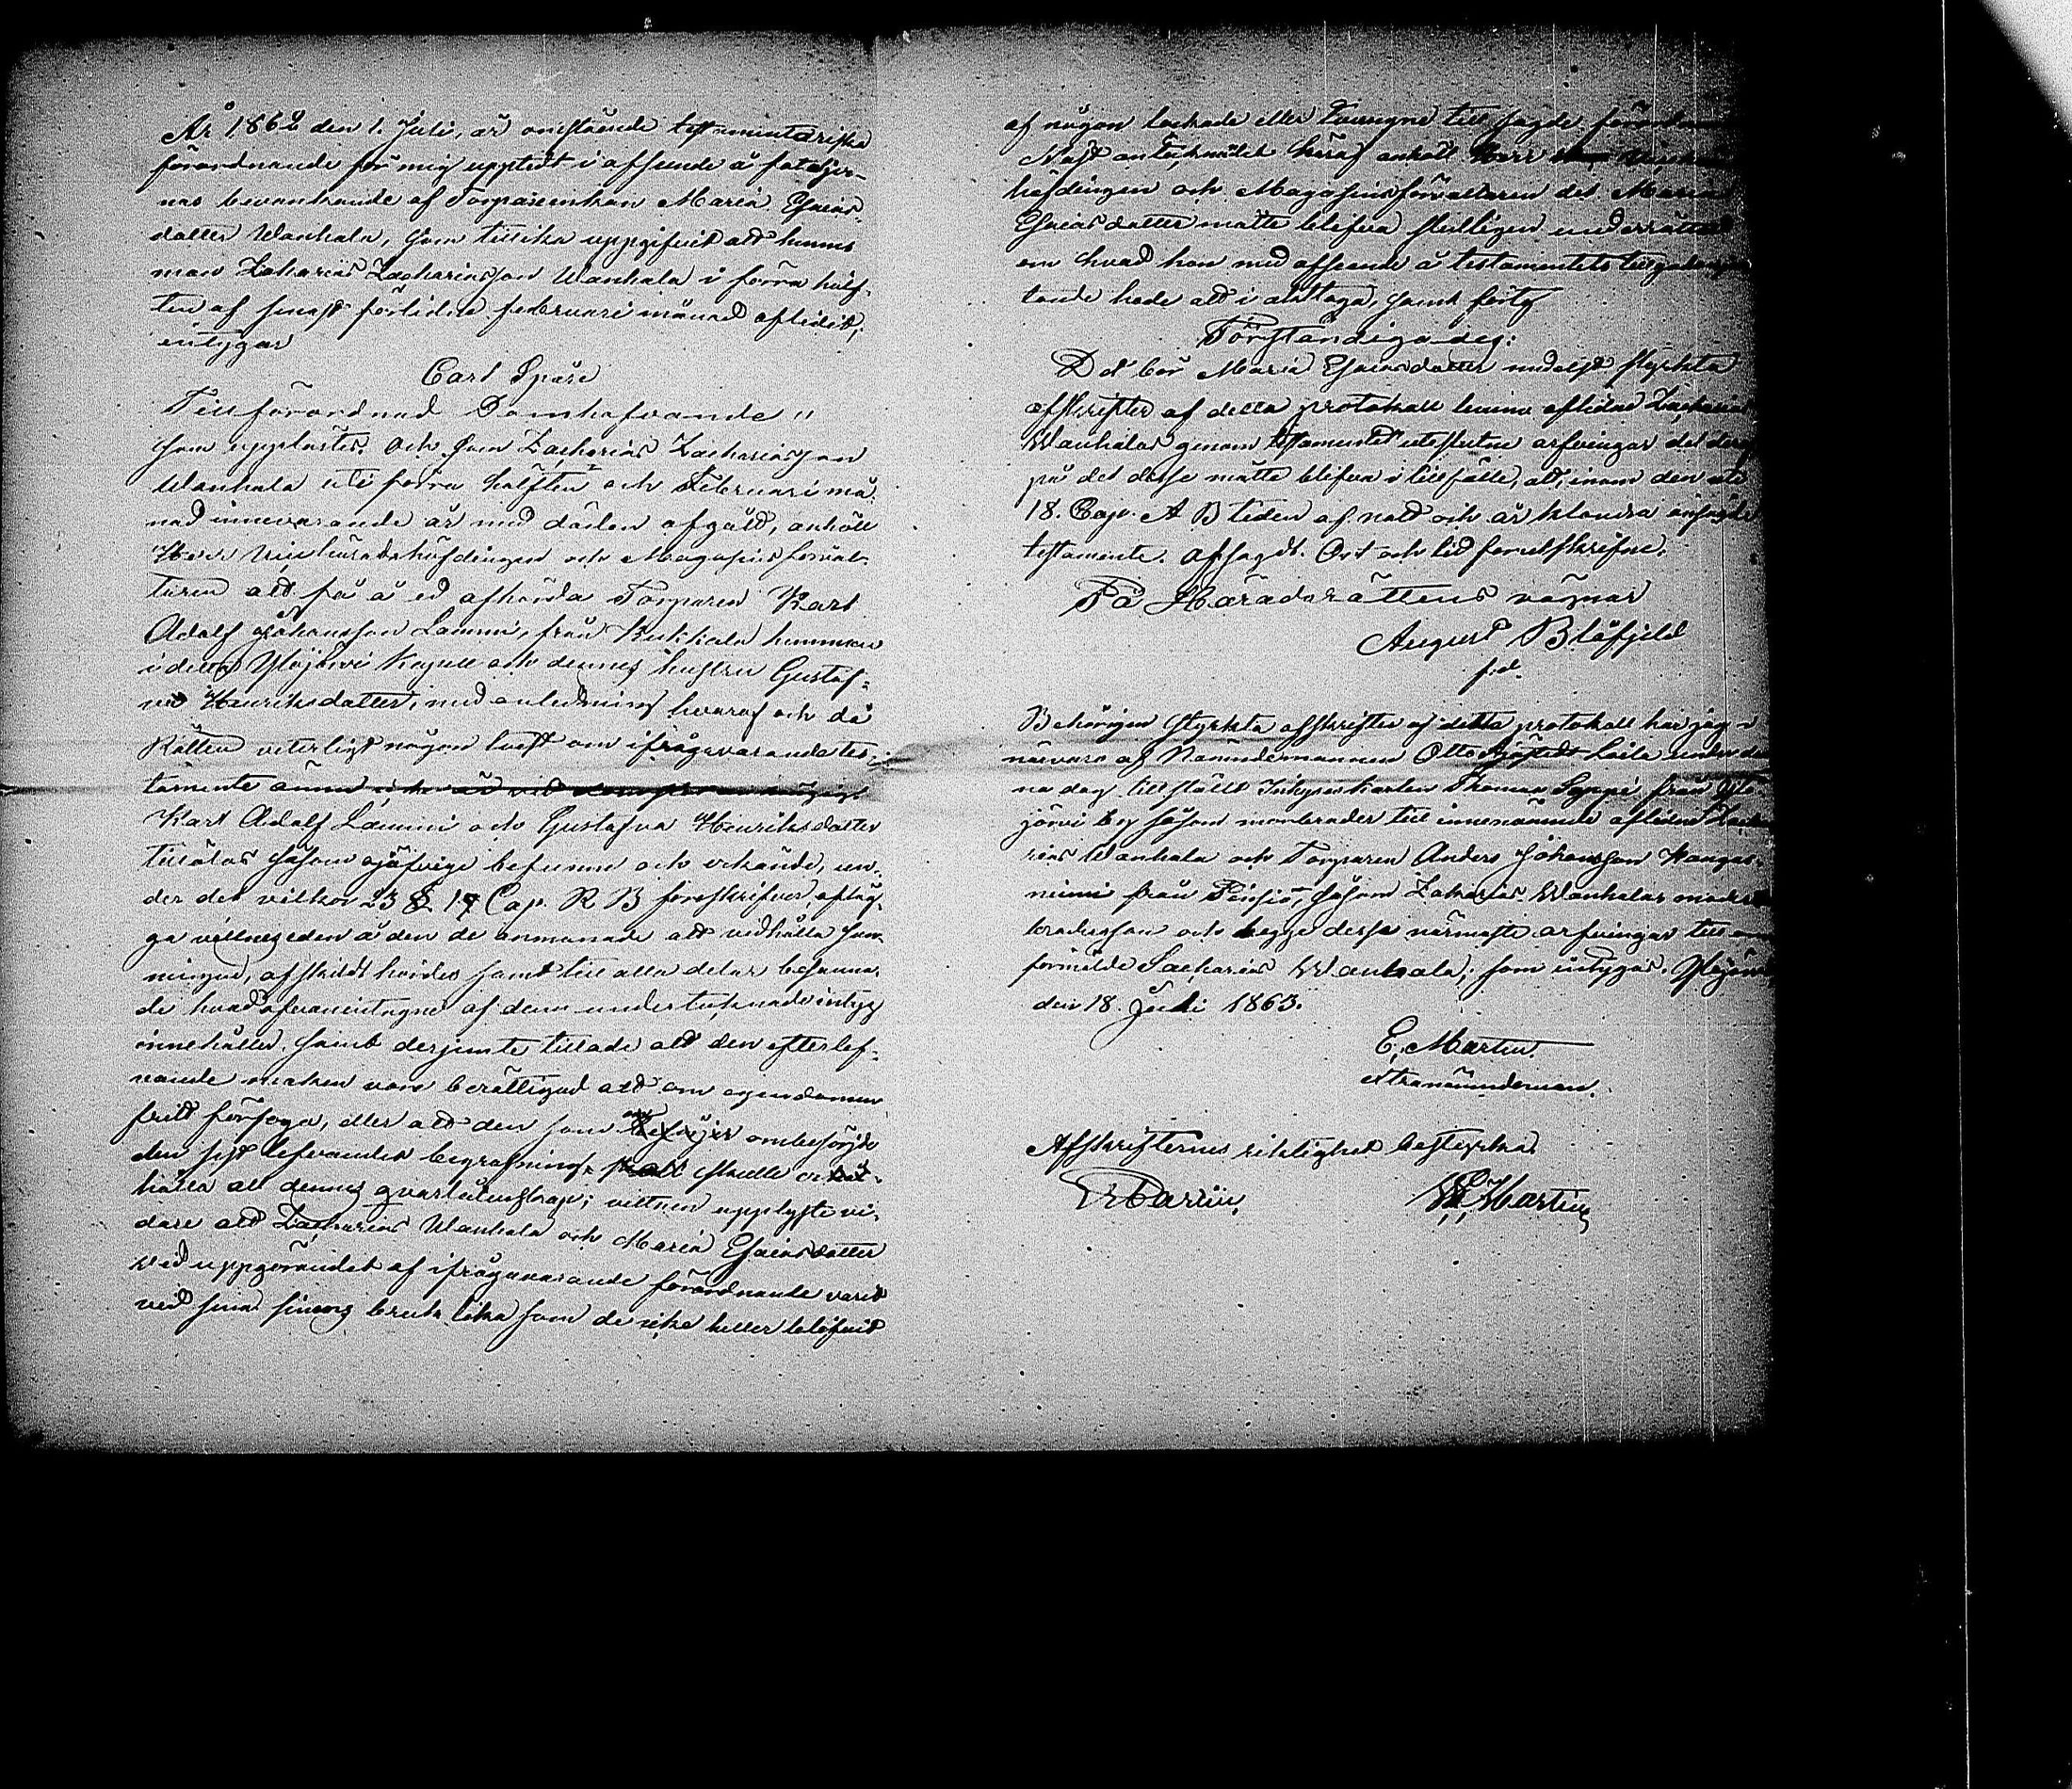 År 1862 den 1. Juli, är ofvanstående testamentariska
förordnande för mig uppledt i afseende å fataljer-
nas bevarande af Torpareenkan Maria Esaias-
dotter Wanhala, som tillika uppgifvit att hennes
man Zakarias Zachariasson Wanhala i förra hälf-
ten af sinast förlidne februari månad aflidit,
intygar
Carl Spåre
Tillförordnad Domhafvande"
som upplästes. Och som Zacharias Zachariasson
Wanhala uti förra hälften och Februari må-
nad innevarande år med döden afgått, anhöll
Herr Vicehäradshöfdingen och Magasinsförval-
taren att få å ed afhörda Torparen Karl
Adolf Johansson Lammi, från Kukkala hemman
i detta Ylöjärvi Kapell och dennes hustru Gustaf-
va Henriksdotter, med anledning hvaraf och då
Rätten veterligt någon tvist om ifrågavarande tes-
tamente ännu icke är vid
Karl Adolf Lammi och Gustafva Henriksdotter
tillätos såsom ojäfvige befunne och erkände, un-
der det vilkor 23 § 17 Cap. R B föreskrifver, afläg-
ga vittneseden å den de anmanade att vidhålla san-
ningen, afskildt hördes samt till alla delar besanna-
de hvad ofvanintagne af dem undertecknade intyg
innehåller, samt derjemte tillade att den efterlef-
vande maken vore berättigad att om egendomen
fritt förfoga, eller att den som ombesörjde
den sist lefvandes begrafning skulle er-
hålla all dennes qvarlåtenskap; vittnen upplyste vi-
dare att Zacharias Wanhala och Maria Esaiasdotter
vid uppgörandet af ifrågavarande förordnande varit
vid sina sinnens bruk lika som de icke heller blifvit
af någon lockade eller tvungne till sagde
Näst antecknandet häraf anhöll Herr
höfdingen och Magasinsförvaltaren det Maria
Esaiasdotter måtte blifva skriftligen underrättad
om hvad hon med afseende å testamentets
tande hade att i akttaga, samt fört
Förständigades:
Det bör Maria Esaiasdotter medelst styrkta
afskrifter af detta protokoll lemna aflidne Zacharias
Wanhalas genom testamentet uteslutne arfvingar del deraf
på det desse måtte blifva i tillfälle, att, inom den uti
18. Cap. A B tiden af natt och år klandra ansagde
testamente. Afsagdt. Ort och tid förutskrifne.
På Häradsrättens vägnar
August Blåfjeld
Behörigen styrkta afskrifter af detta protokoll har jag i
närvaro af Nämndemannen Otto Laila under den-
na dag tillställt Inhyseskarlen Thomas Seppä från Ylö-
järvi by såsom morbroder till innenämnde aflidne Zacha-
rias Wanhala och Torparen Anders Johansson Kangas-
niemi från Pinsiö, såsom Zakarias Wanhalas moder
brodersson och begge desse närmaste arfvingar till
förmälde Zacharias Wanhala; som intygas. Ylöjärvi
den 18 Juli 1863.
E. Martin.
extranämndeman.
Afskrifternes riktighet bestyrka.
E. Martin,